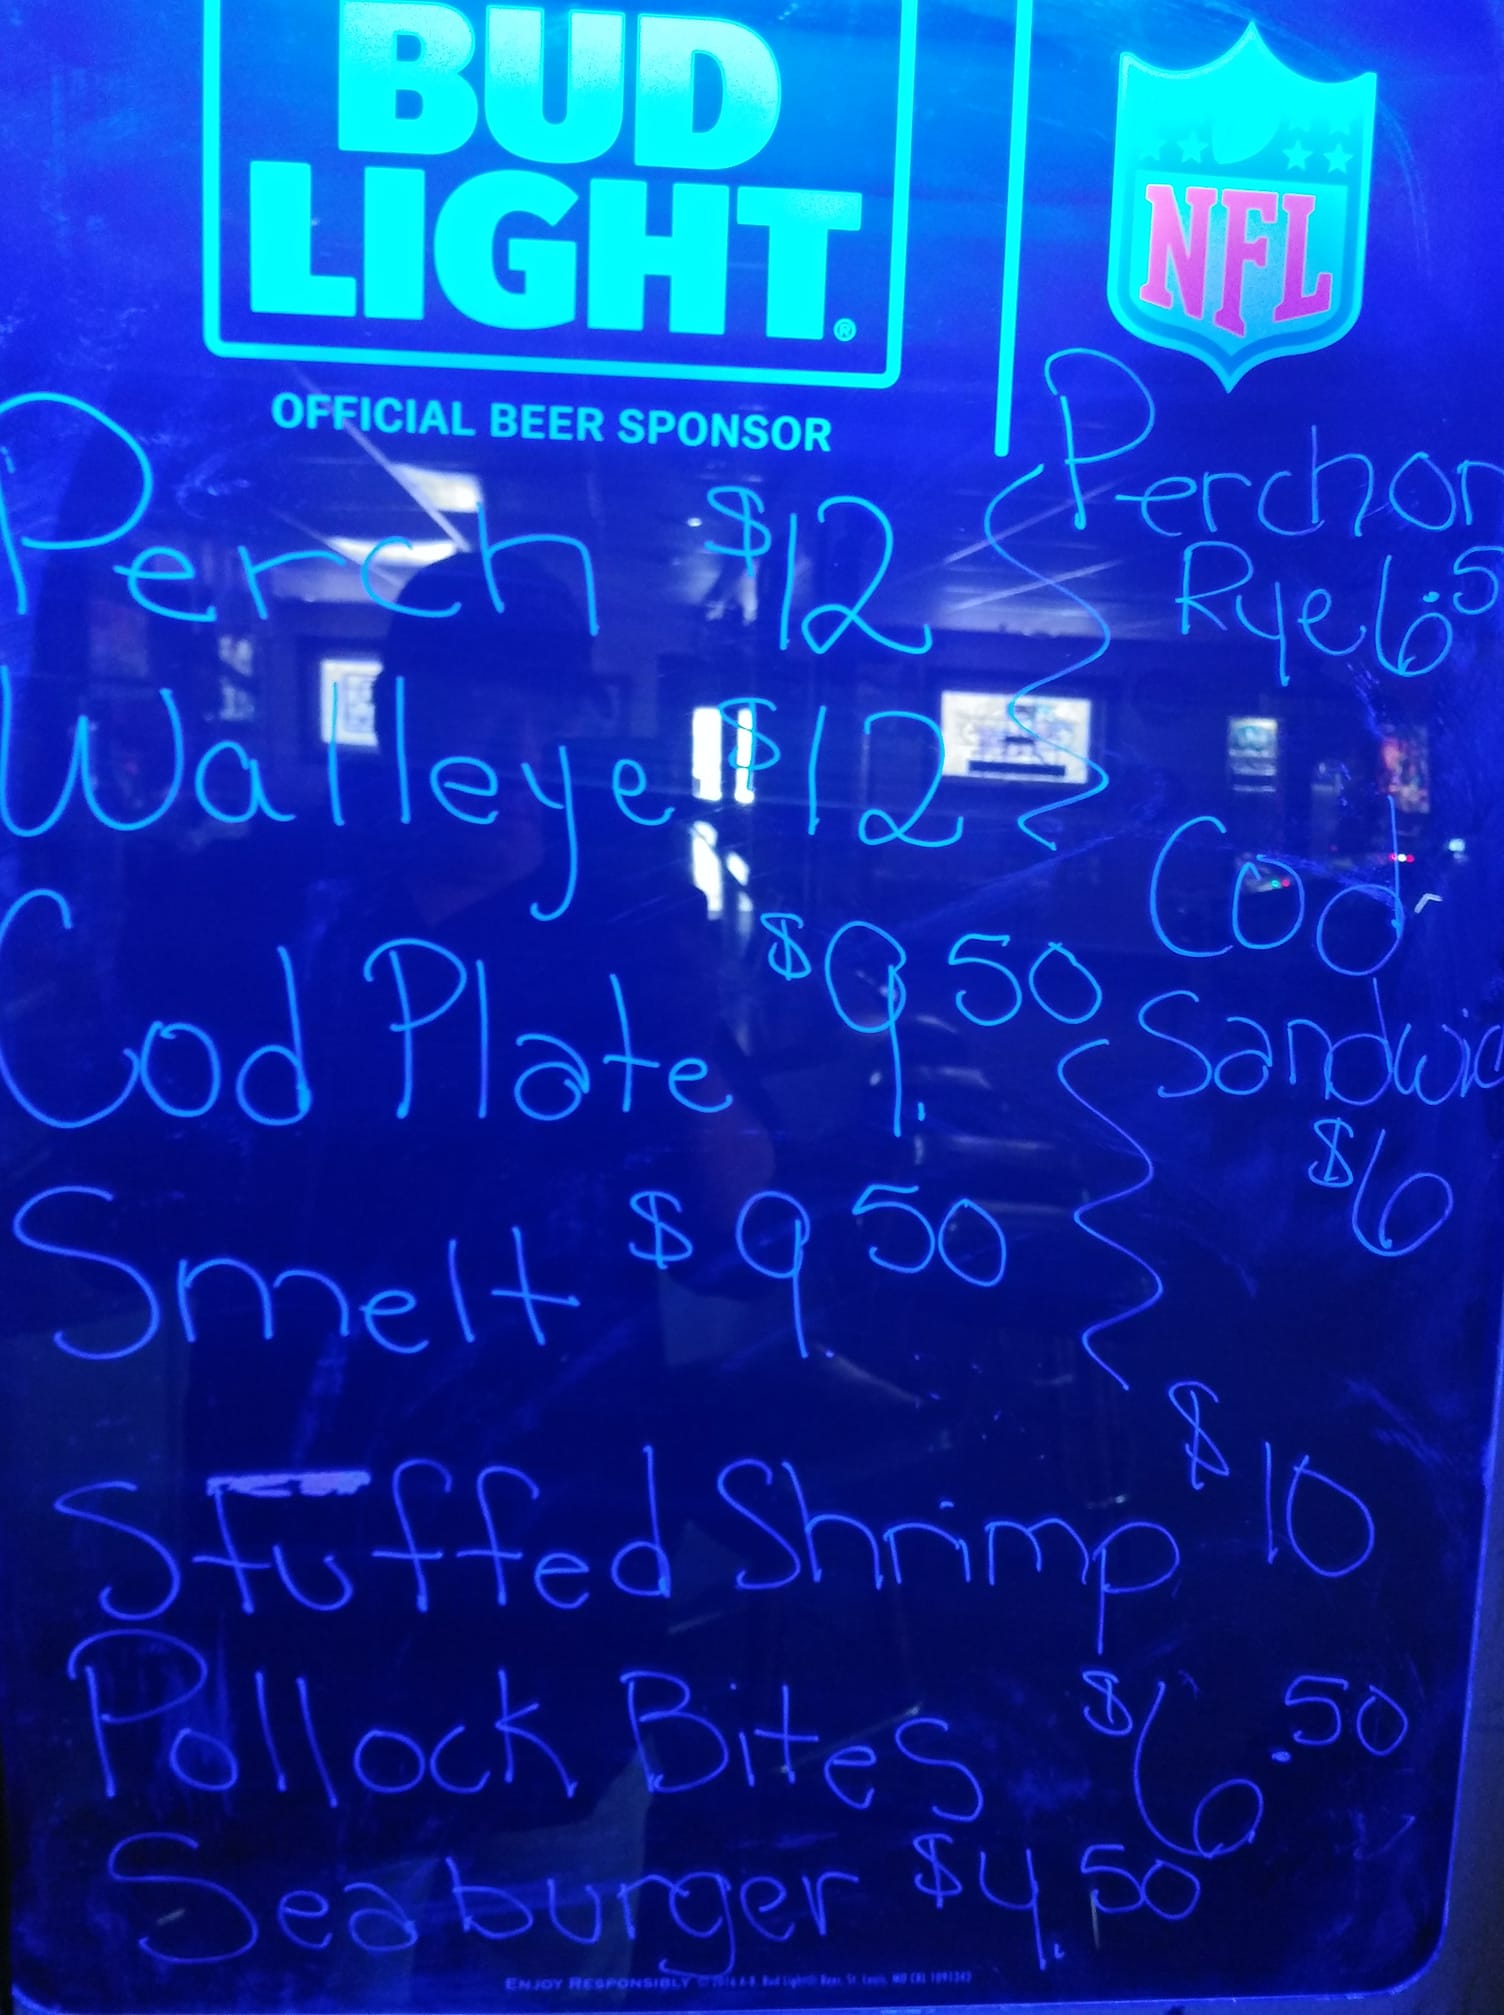 BUD
LIGHT®
OFFICIAL BEER SPONSOR
NFL
Perch $12
Walleye $12
Cod Plate $9.50
Smelt $9.50
Perch on
Rye 6.5
Cod
Sandwic
$6
Stuffed Shrimp $10
Pollock Bites $6.50
Seaburger $4.50
ENJOY RESPONSIBLY © 2016 A-B, Bud Light® Beer, St. Louis, MO